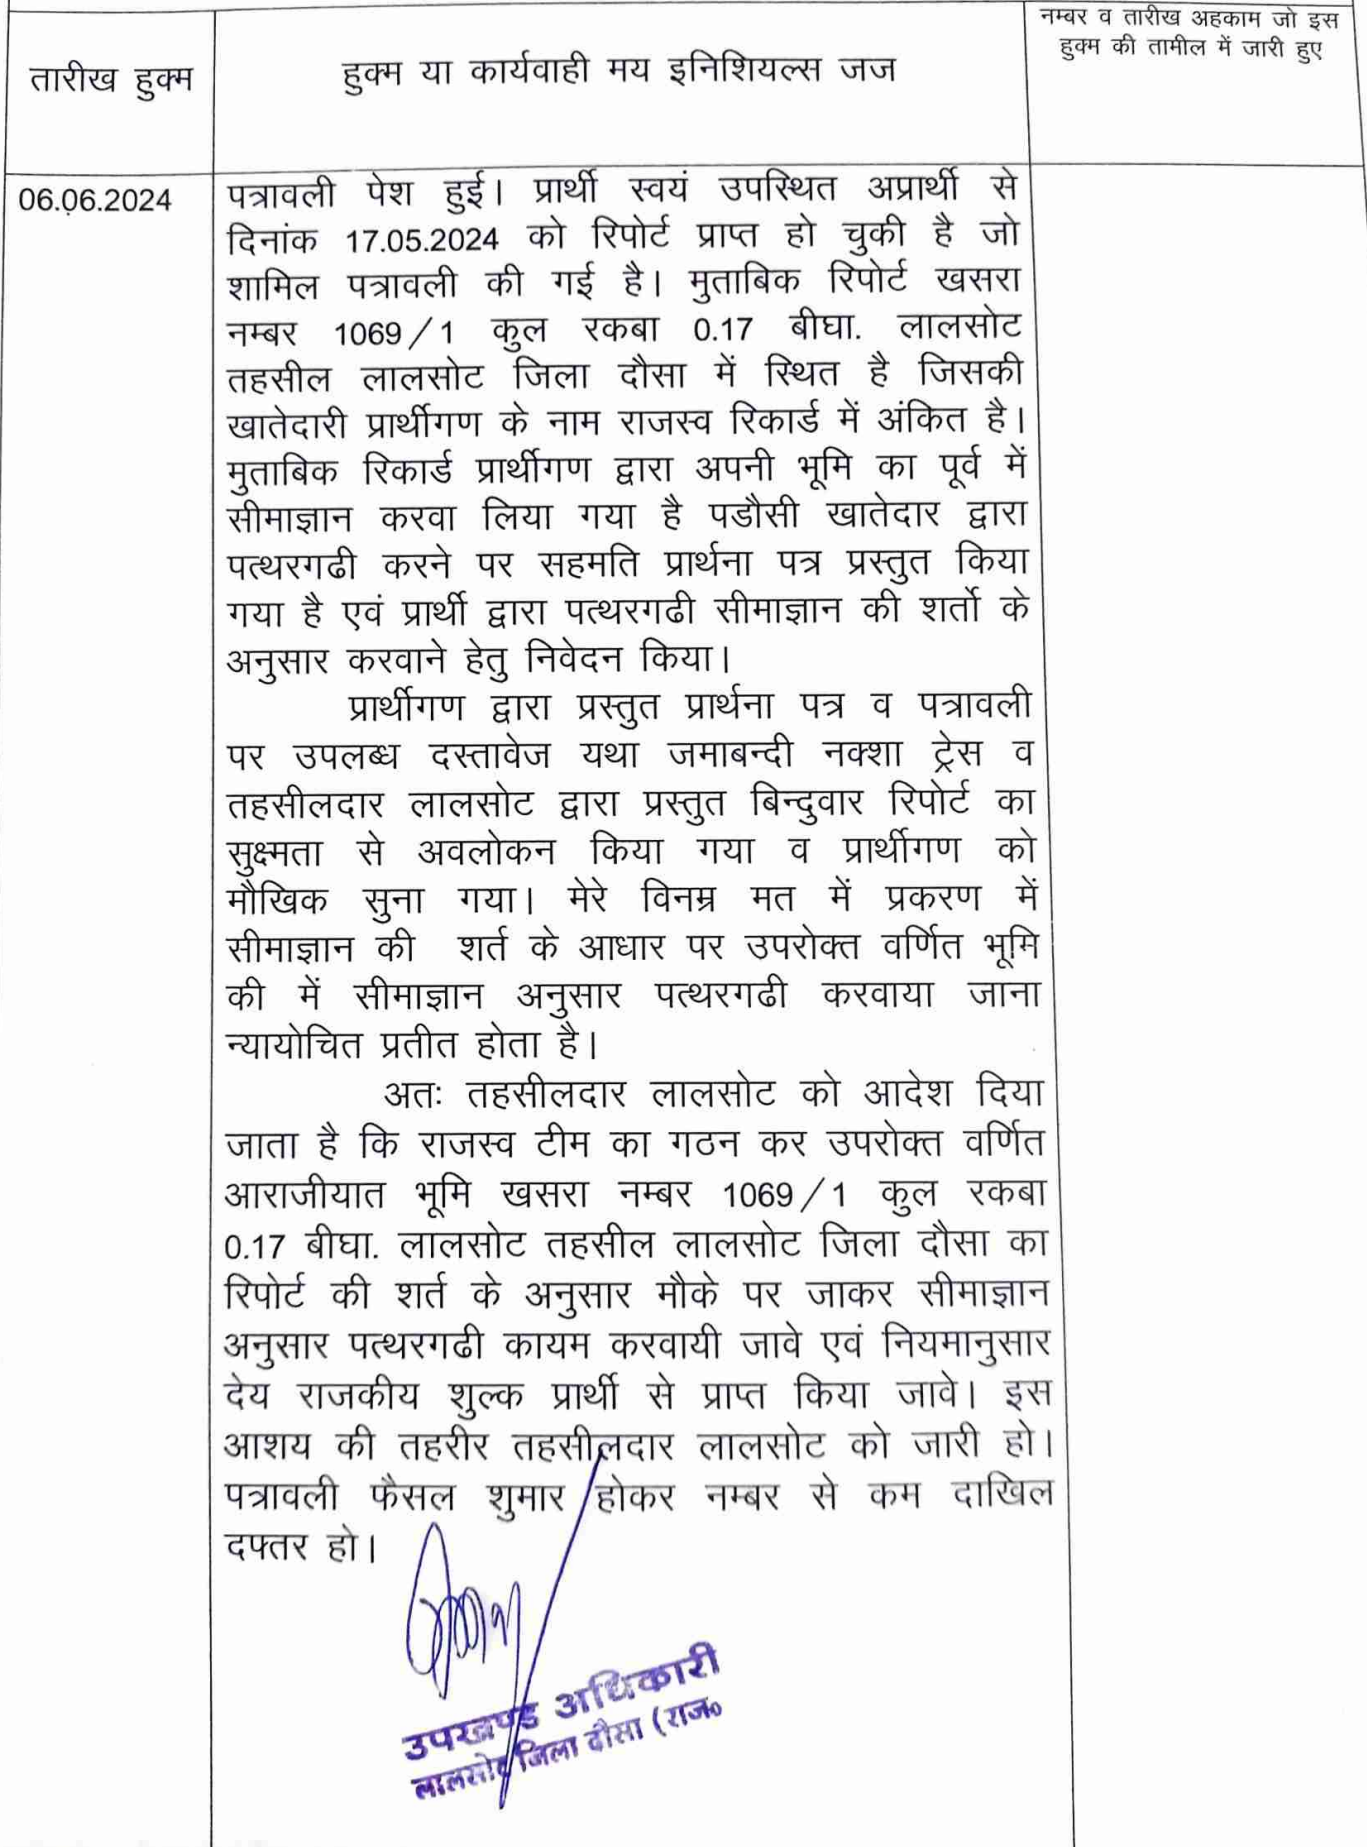 तारीख हुक्म
हुक्म या कार्यवाही मय इनिशियल्स जज
नम्बर व तारीख अहकाम जो इस
हुक्म की तामील में जारी हुए
06.06.2024
पत्रावली पेश हुई। प्रार्थी स्वयं उपस्थित अप्रार्थी से
दिनांक 17.05.2024 को रिपोर्ट प्राप्त हो चुकी है जो
शामिल पत्रावली की गई है। मुताबिक रिपोर्ट खसरा
नम्बर 1069/1 कुल रकबा 0.17 बीघा. लालसोट
तहसील लालसोट जिला दौसा में स्थित है जिसकी
खातेदारी प्रार्थीगण के नाम राजस्व रिकार्ड में अंकित है।
मुताबिक रिकार्ड प्रार्थीगण द्वारा अपनी भूमि का पूर्व में
सीमाज्ञान करवा लिया गया है पडौसी खातेदार द्वारा
पत्थरगढी करने पर सहमति प्रार्थना पत्र प्रस्तुत किया
गया है एवं प्रार्थी द्वारा पत्थरगढी सीमाज्ञान की शर्तो के
अनुसार करवाने हेतु निवेदन किया।
प्रार्थीगण द्वारा प्रस्तुत प्रार्थना पत्र व पत्रावली
पर उपलब्ध दस्तावेज यथा जमाबन्दी नक्शा ट्रेस व
तहसीलदार लालसोट द्वारा प्रस्तुत बिन्दुवार रिपोर्ट का
सुक्ष्मता से अवलोकन किया गया व प्रार्थीगण को
मौखिक सुना गया। मेरे विनम्र मत में प्रकरण में
सीमाज्ञान की शर्त के आधार पर उपरोक्त वर्णित भूमि
की में सीमाज्ञान अनुसार पत्थरगढी करवाया जाना
न्यायोचित प्रतीत होता है।
अतः तहसीलदार लालसोट को आदेश दिया
जाता है कि राजस्व टीम का गठन कर उपरोक्त वर्णित
आराजीयात भूमि खसरा नम्बर 1069/1 कुल रकबा
0.17 बीघा. लालसोट तहसील लालसोट जिला दौसा का
रिपोर्ट की शर्त के अनुसार मौके पर जाकर सीमाज्ञान
अनुसार पत्थरगढी कायम करवायी जावे एवं नियमानुसार
देय राजकीय शुल्क प्रार्थी से प्राप्त किया जावे। इस
आशय की तहरीर तहसीलदार लालसोट को जारी हो।
पत्रावली फैसल शुमार होकर नम्बर से कम दाखिल
दफ्तर हो।
उपखण्ड अधिकारी
लालसोट जिला दौसा (राज०